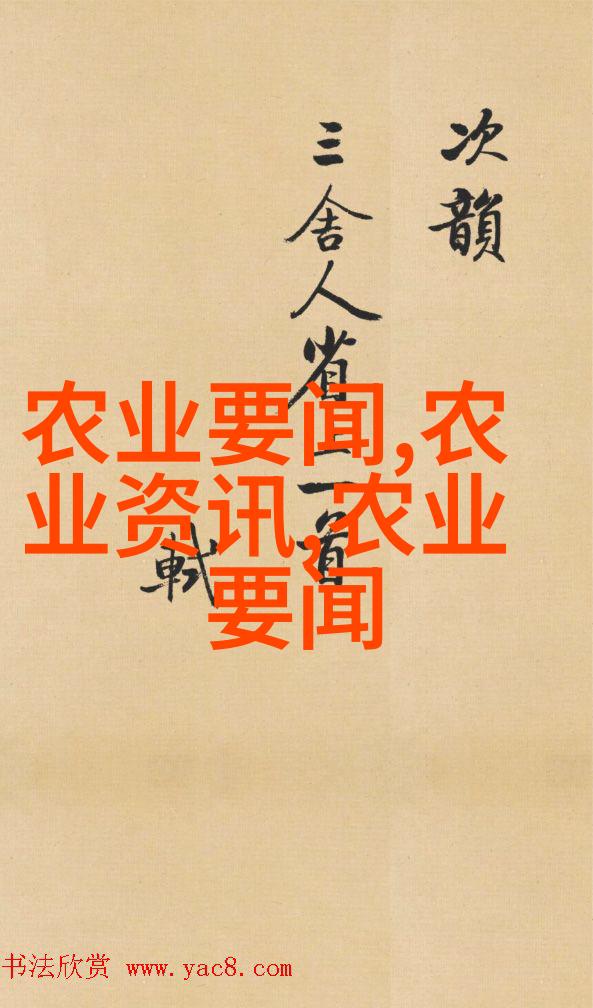 次韻
三舍人省上一首
軾
农业要闻,农
业资讯,农业
要闻
书法欣赏 www.yac8.com